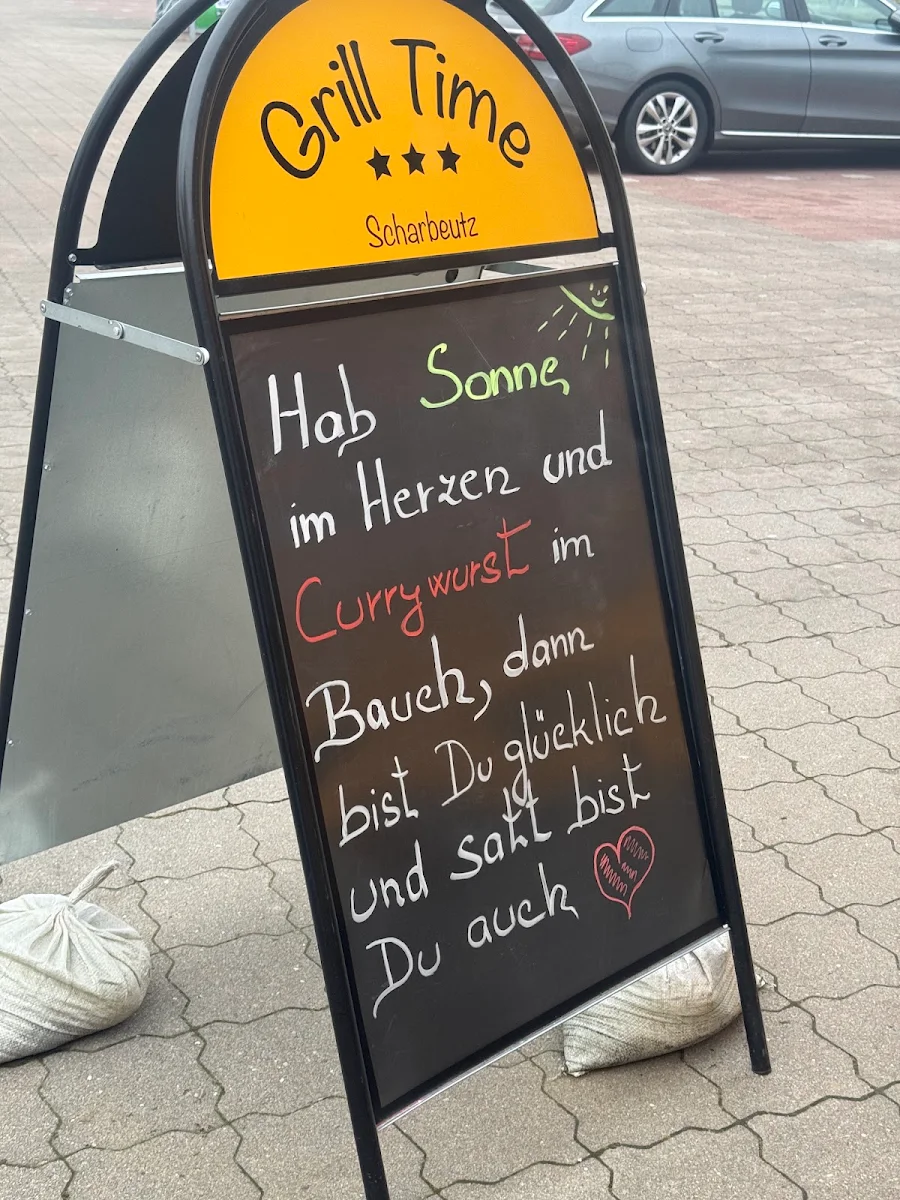 Grill Time
Scharbeutz
Hab Sonne
im Herzen und
Currywurst im
Bauch, dann
bist Du glücklich
und satt bist
Du auch